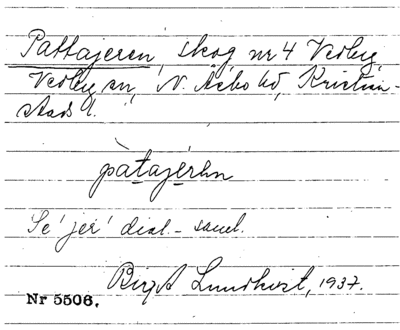 Pattajeren, skog nr 4 Vedby,
Vedby sn, N. Åsbo hd, Kristian-
stads l.
pàtajérən
Se 'jer' dial.-saml.
Birgit Lundkvist, 1937.
Nr 5506.